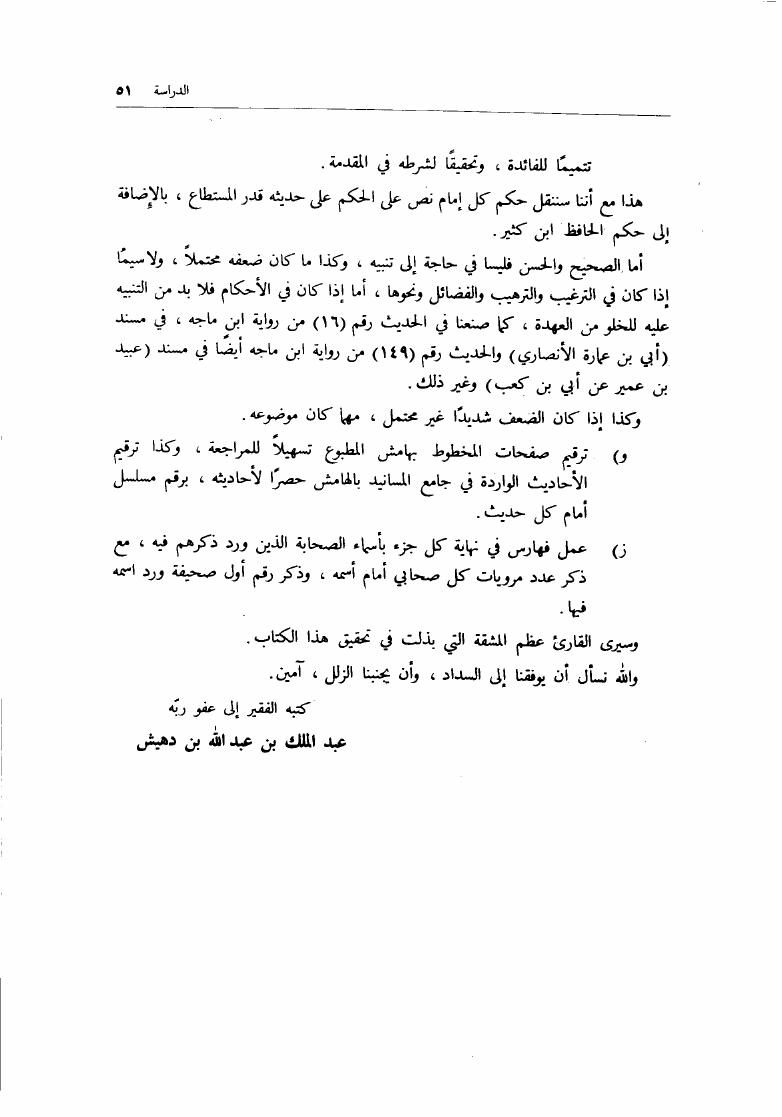 الدراسة ٥١
تتميمًا للفائدة ، وتحقيقًا لشرطه في المقدمة .
هذا مع أننا سننقل حكم كل إمام نص على الحكم على حديثه قدر المستطاع ، بالإضافة
إلى حكم الحافظ ابن كثير .
أما الصحيح والحسن فليسا في حاجة إلى تنبيه ، وكذا ما كان ضعفه محتملاً ، ولاسيمًا
إذا كان في الترغيب والترهيب والفضائل ونحوها ، أما إذا كان في الأحكام فلا بد من التنبيه
عليه للخلو من العهدة ، كما صنعنا في الحديث رقم (١٦) من رواية ابن ماجه ، في مسند
(أبي بن عمارة الأنصاري) والحديث رقم (١٤٩) من رواية ابن ماجه أيضًا في مسند (عبيد
بن عمير عن أبي بن كعب) وغير ذلك .
وكذا إذا كان الضعف شديدًا غير محتمل ، مهما كان موضوعه .
و) ترقيم صفحات المخطوط بهامش المطبوع تسهيلاً للمراجعة ، وكذا ترقيم
الأحاديث الواردة في جامع المسانيد بالهامش حصرًا لأحاديثه ، برقم مسلسل
أمام كل حديث .
ز) عمل فهارس في نهاية كل جزء بأسماء الصحابة الذين ورد ذكرهم فيه ، مع
ذكر عدد مرويات كل صحابي أمام أسمه ، وذكر رقم أول صحيفة ورد اسمه
فيها .
وسيرى القارئ عظم المشقة التي بذلت في تحقيق هذا الكتاب .
والله نسأل أن يوفقنا إلى السداد ، وأن يجنبنا الزلل ، آمين .
كتبه الفقير إلى عفو ربّه
عبد الملك بن عبد الله بن دهيش